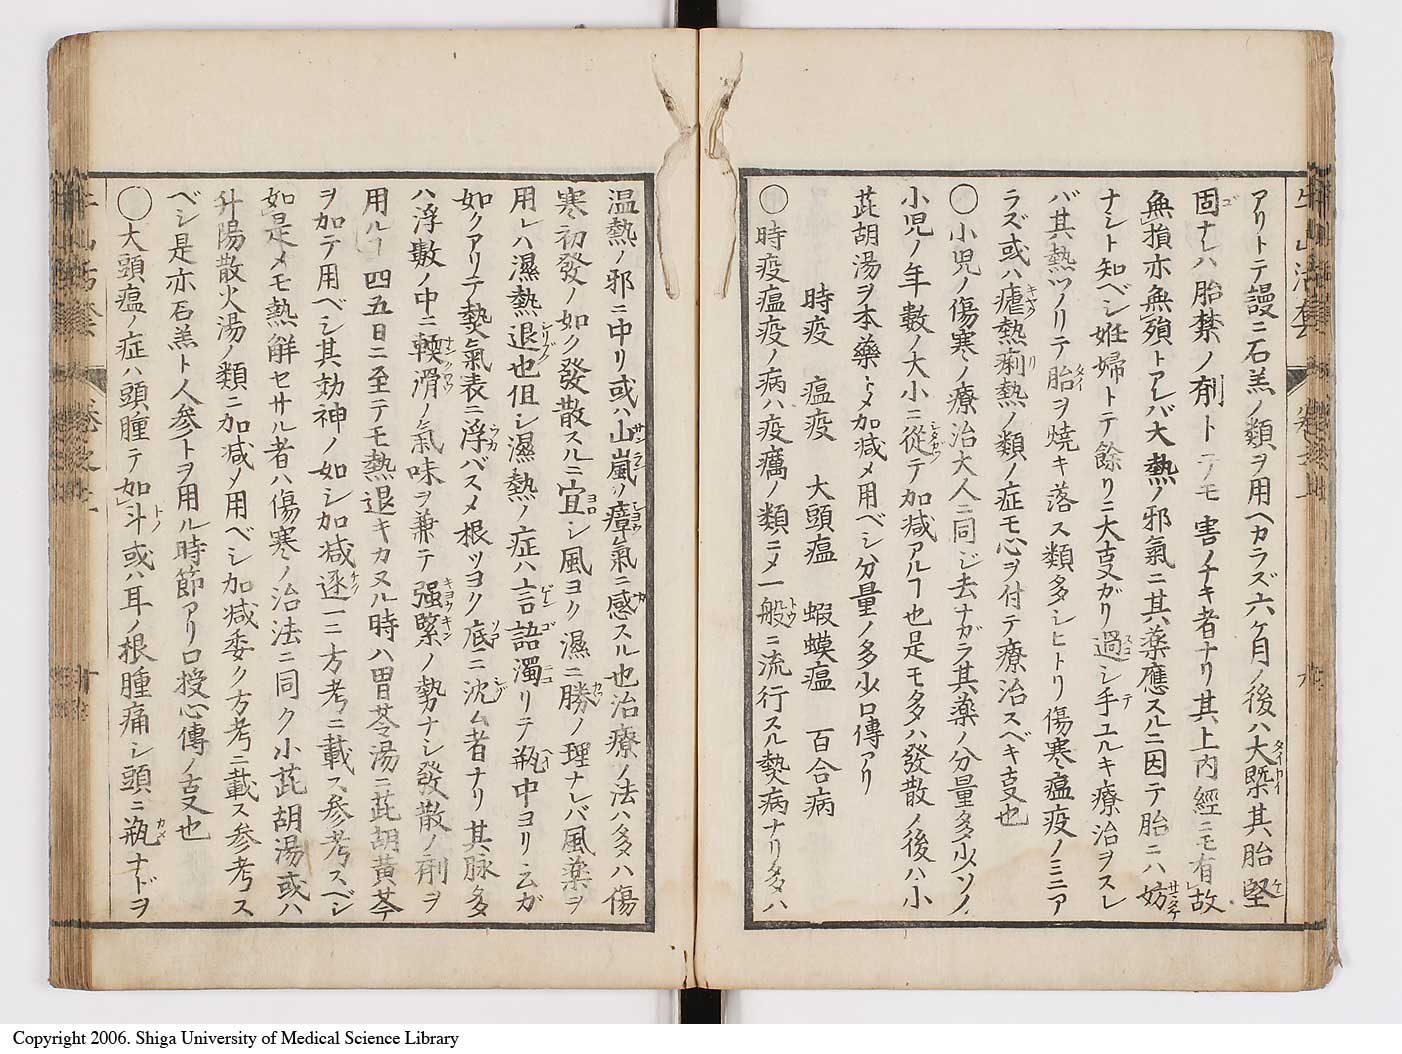 アリトテ謾ニ石羔ノ類ヲ用ヘカラズ六ケ月ノ後ハ大槩其胎堅
固ナレハ胎禁ノ剤トテモ害ノナキ者ナリ其上内經ニモ有故
無損亦無殞トアレバ大熱ノ邪氣ニ其藥應スルニ因テ胎ニハ妨
ナシト知ベシ姙婦トテ餘リニ大叓ガリ過シ手ユルキ療治ヲスレ
バ其熱ツノリテ胎ヲ燒キ落ス類多シヒトリ傷寒瘟疫ノミニア
ラズ或ハ瘧熱痢熱ノ類ノ症モ心ヲ付テ療治スベキ叓也
〇小児ノ傷寒ノ療治大人ニ同ジ去ナガラ其藥ノ分量多少ソノ
小児ノ年數ノ大小ニ從テ加減アルヿ也是モ多ハ發散ノ後ハ小
茈胡湯ヲ本藥トメ加減メ用ベシ分量ノ多少口傳アリ
時疫 瘟疫 大頭瘟 蝦蟆瘟 百合病
〇時疫瘟疫ノ病ハ疫癘ノ類ニメ一般ニ流行スル熱病ナリ多ハ
温熱ノ邪ニ中リ或ハ山嵐ノ瘴氣ニ感スル也治療ノ法ハ多ハ傷
寒初發ノ如ク發散スルニ宜シ風ヨク濕ニ勝ノ理ナレバ風藥ヲ
用レハ濕熱退也但シ濕熱ノ症ハ言語濁リテ瓶中ヨリ云ガ
如クアリテ熱氣表ニ浮バスメ根ツヨク底ニ沈ム者ナリ其脉多
ハ浮數ノ中ニ輭滑ノ氣味ヲ兼テ强緊ノ勢ナシ發散ノ剤ヲ
用ルヿ四五日ニ至テモ熱退キカヌル時ハ胃苓湯ニ茈胡黄芩
ヲ加テ用ベシ其効神ノ如シ加減逐一ニ方考ニ載ス参考スベシ
如是メモ熱解セサル者ハ傷寒ノ治法ニ同ク小茈胡湯或ハ
升陽散火湯ノ類ニ加减メ用ベシ加减委ク方考ニ載ス参考ス
ベシ是亦石羔ト人参トヲ用ル時節アリ口授心傳ノ叓也
〇大頭瘟ノ症ハ頭腫テ如斗或ハ耳ノ根腫痛シ頭ニ瓶ナドヲ
Copyright 2006. Shiga University of Medical Science Library